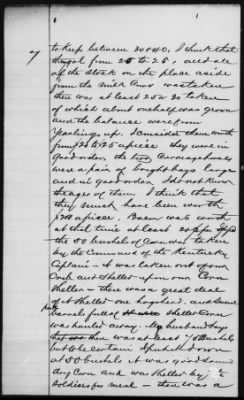 7
to keep between 30 & 40, I think that
they got from 20 to 25, and all
of the stock on the place aside
from the milk Cows was taken
there was at least 25 or 30 taken
of which about one half was grown
and the balance were from
Yearlings up. I consider them worth
from 20 to 25 a piece they were in
good order. the two Carriage horses
were a pair of bright bays large
and in good order I do not know
the ages of them I think that
they must have been worth
a piece. Bacon was worth
at that time at least 20¢ per
the 50 bushels of Corn was taken
by the Command of the Kentucky
Captain - it was taken out of our
Crib and Shelled upon our Corn
Sheller - there was a great deal
of it Shelled one hogshead and several
barrels full of Shelled Corn
was hauled away. My husband says
there was at least 75 Bushels
but to be certain I put it down
at 50 bushels it was good sound
dry Corn and was shelled by the
soldiers for meal - there was a